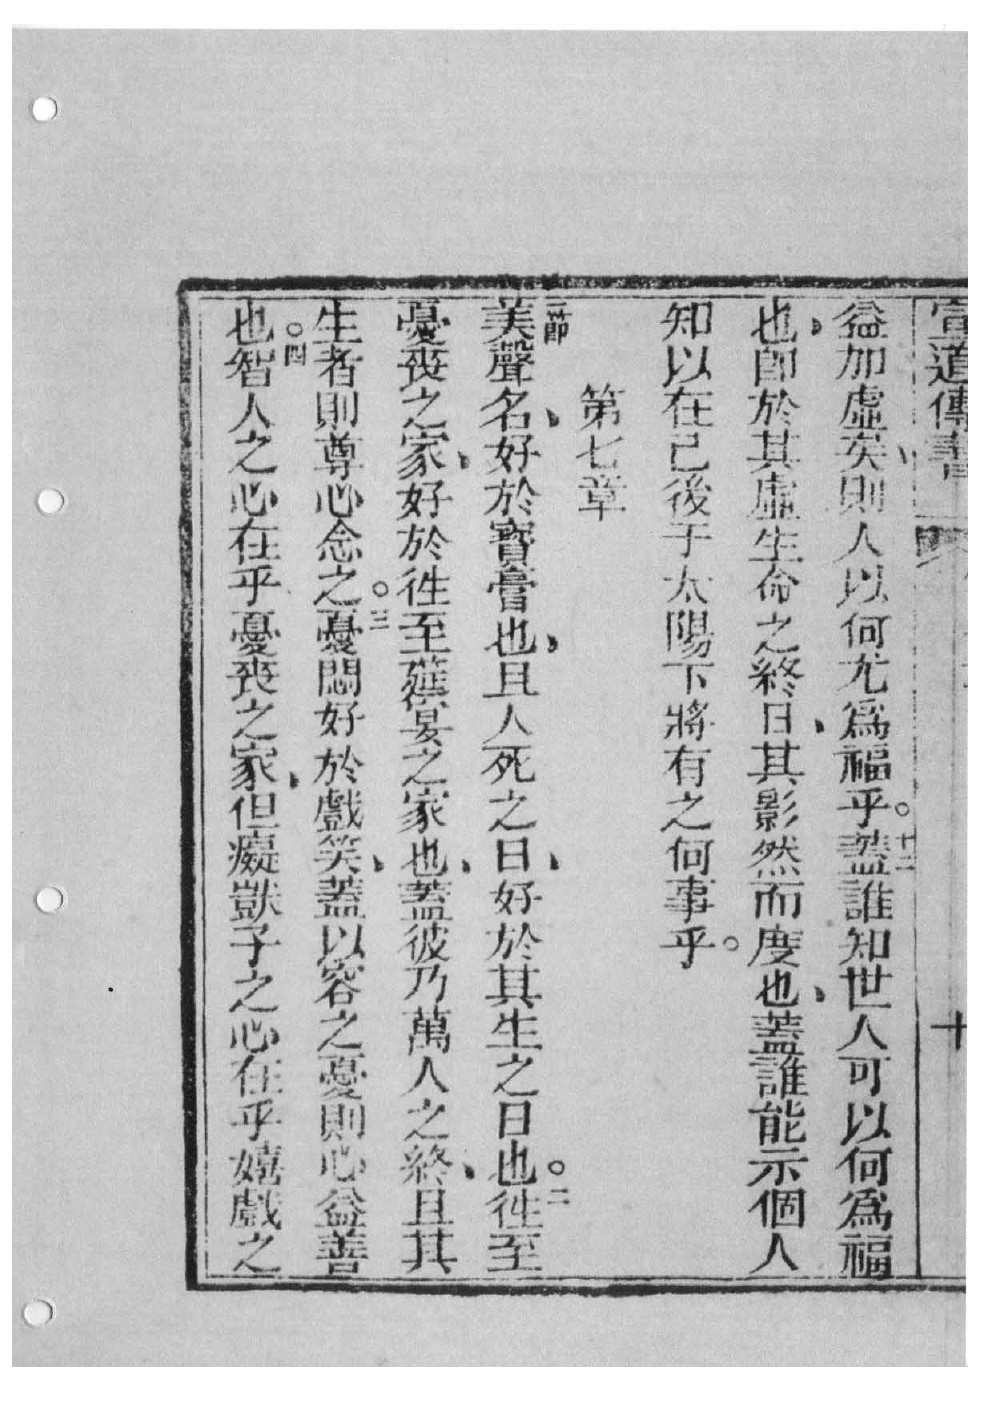 宣道傳書 十
益加虛矣、則人以何尤為福乎。十二蓋誰知世人可以何為福
也、即於其虛生命之終日、其影然而度也、蓋誰能示個人
知以在己後于太陽下將有之何事乎。
第七章
一節美聲名、好於寶膏也、且人死之日、好於其生之日也。二徃至
憂喪之家、好於徃至筵宴之家也、蓋彼乃萬人之終、且其
生者則尊心念之。三憂悶好於戲笑、蓋以容之憂則心益善
也。四智人之心在乎憂喪之家、但癡獃子之心在乎嬉戲之